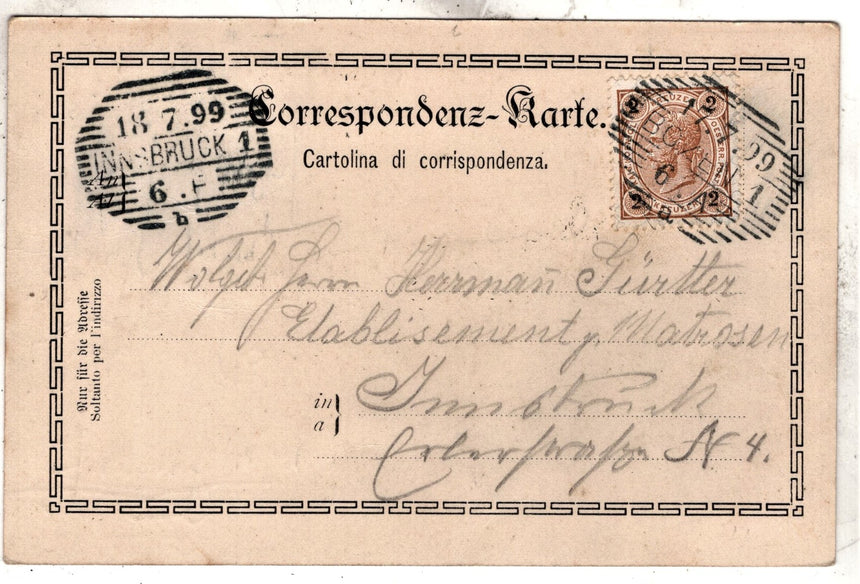 Correspondenz-Karte.
Cartolina di corrispondenza.
18 7.99
INNSBRUCK 1
6 . F
b
2 2
2 2
.99
1
6
a
Wolgeb Herrn Herrman̄ Gürtler
Etablisement z. Matrosen
in
a
Innsbruck
Erlerstraße N 4.
Nur für die Adresse
Soltanto per l'indirizzo